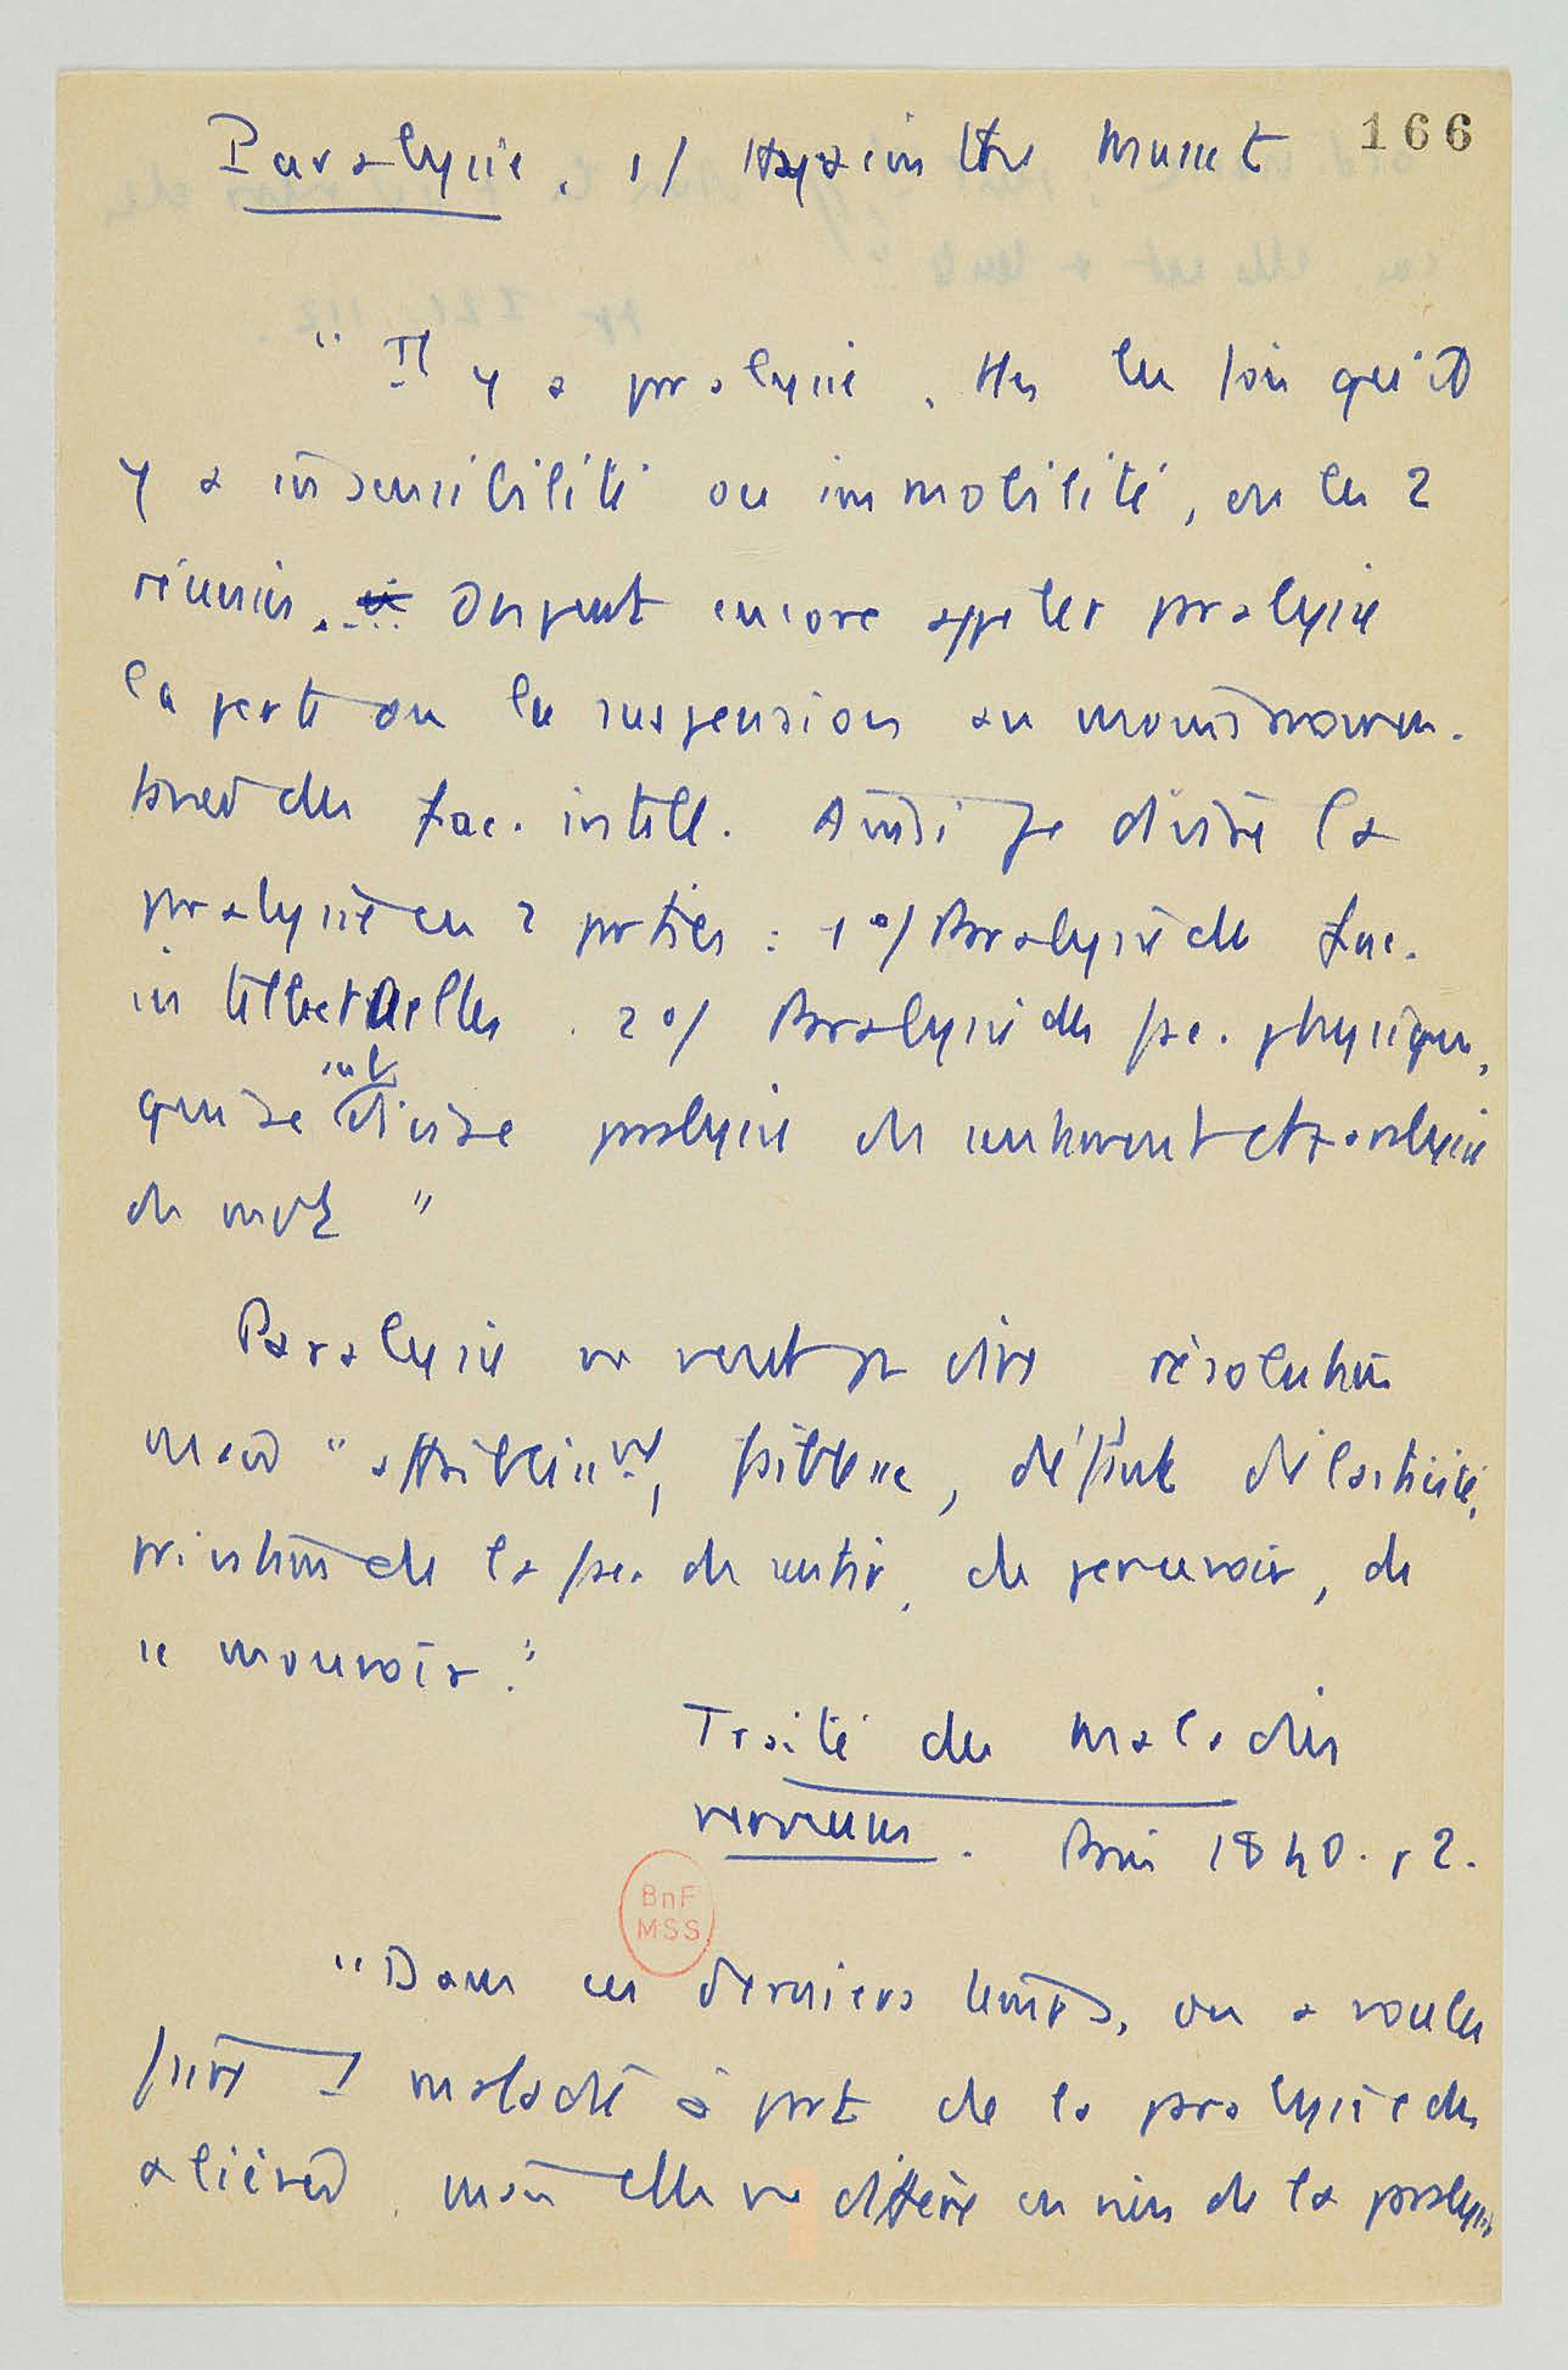 166
Paralysie. 1/ Hyacinthe Musset
"Il y a paralysie, ttes les fois qu'il
y a insensibilité ou immobilité, ou les 2
réunies. On peut encore appeler paralysie
la perte ou la suspension au moins
des fac. intell. Aussi je divise la
paralysie en 2 parties : 1°/ Paralysie des fac.
intellectuelles. 2°/ Paralysie des fac. physiques,
qui se subdivise paralysie de sentiment et paralysie
de mvt"
Paralysie ne veut pas dire résolution
mais "affaiblissmt, faiblesse, défaut d'élasticité,
privation de la fac. de sentir, de percevoir, de
se mouvoir."
Traité des maladies
nerveuses. Paris 1840. 2.
"Dans ces derniers temps, on a voulu
faire 1 maladie à part de la paralysie des
aliénés, mais elle ne diffère en rien de la paralysie
BnF
MSS